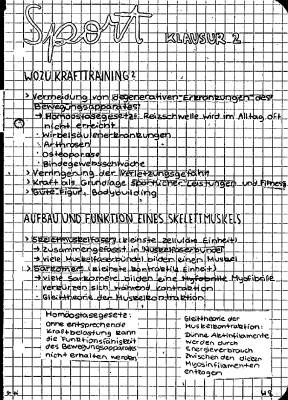 Sport
KLAUSUR 2
WOZU KRAFTTRAINING?
> Vermeidung von degenerativen Erkrankungen des
Bewegungsapparates!
→ Homöostasegesetz! Reizschwelle wird im Alltag oft
nicht erreicht
· Wirbelsäulenerkrankungen
· Arthrosen
· Osteoporose
· Bindegewebsschwäche
> Verringerung der Verletzungsgefahr
> Kraft als Grundlage sportlicher Leistungen und Fitness
> Gute Figur, Bodybuilding
AUFBAU UND FUNKTION EINES SKELETTMUSKELS
> Skelettmuskelfasern (kleinste zelluläre Einheit)
→ zusammengefasst in Muskelfaserbündel
→ viele Muskelfaserbündel bilden einen Muskel
> Sarkomere (kleinste kontraktile Einheit)
→ viele Sarkomere bilden eine Myofibrille
verkürzen sich während Kontraktion
· Gleittheorie der Muskelkontraktion
Homöostasegesetz:
ohne entsprechende
Kraftbelastung kann
die Funktionsfähigkeit
des Bewegungsapparates
nicht erhalten werden
Gleittheorie der
Muskelkontraktion:
Dünne Aktinfilamente
werden durch
Energieverbrauch
zwischen den dicken
Myosinfilamenten